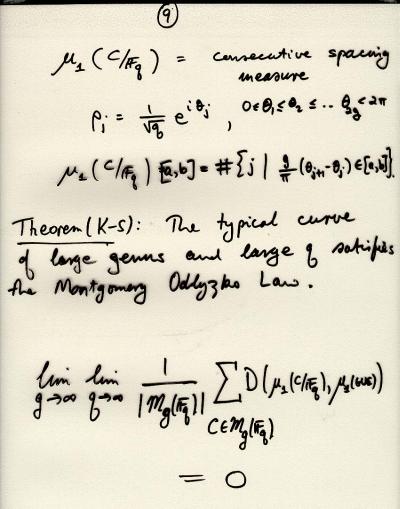 9
μ₁(C/𝔽_q) = consecutive spacing
measure
ρ_j = 1/√q e^{iθ_j}, 0≤θ₁≤θ₂≤..θ_{2g}<2π
μ₁(C/𝔽_q)[a,b] = #{j | g/π (θ_{j+1}-θ_j) ∈ [a,b]}.
Theorem (K-S): The typical curve
of large genus and large q satisfies
the Montgomery Odlyzko Law.
lim_{g→∞} lim_{q→∞} 1/|M_g(𝔽_q)| ∑_{C∈M_g(𝔽_q)} D(μ₁(C/𝔽_q), μ₁(GUE))
= 0